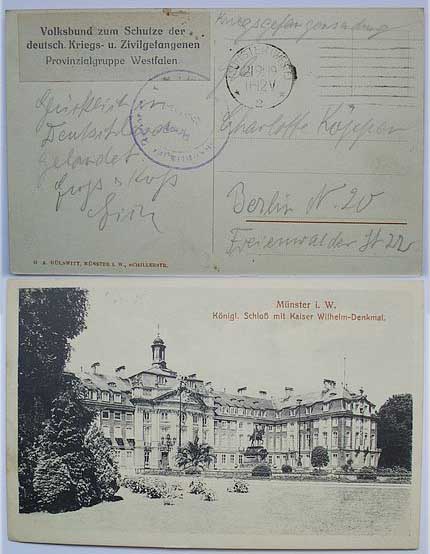 Volksbund zum Schutze der
deutsch. Kriegs- u. Zivilgefangenen
Provinzialgruppe Westfalen
Kriegsgefangenensendung
11-12V
in
Deutschland
gelandet
Gruß u Kuß
Charlotte Köppen
Berlin N. 20
Freienwalder St 22
MÜNSTER I. W., SCHILLERSTR.
Münster i. W.
Königl. Schloß mit Kaiser Wilhelm-Denkmal.